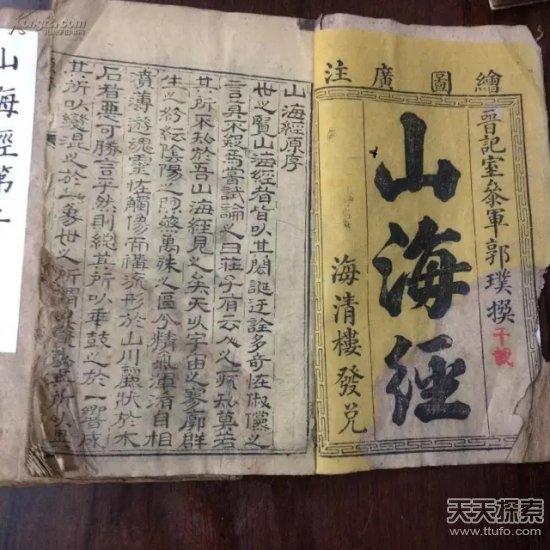 繪圖廣注
晉記室叅軍郭璞撰
山海經
海清樓發兌
千載
山海經原序
世之覽山海經者皆以其閎誕迂誇多奇怪俶儻之
言莫不疑焉嘗試論之曰莊子有云人之所知莫若
其所不知於吾山海經見之矣夫以宇宙之寥廓群
生之紛紜陰陽之煦蒸萬殊之區分精氣渾淆自相
濆薄游魂靈怪觸像而構流形於山川麗狀於木
石者惡可勝言乎然則總其所以乖鼓之於一響成
其所以變混之於一象世之所謂
山海經第
天天探索
www.ttufo.com